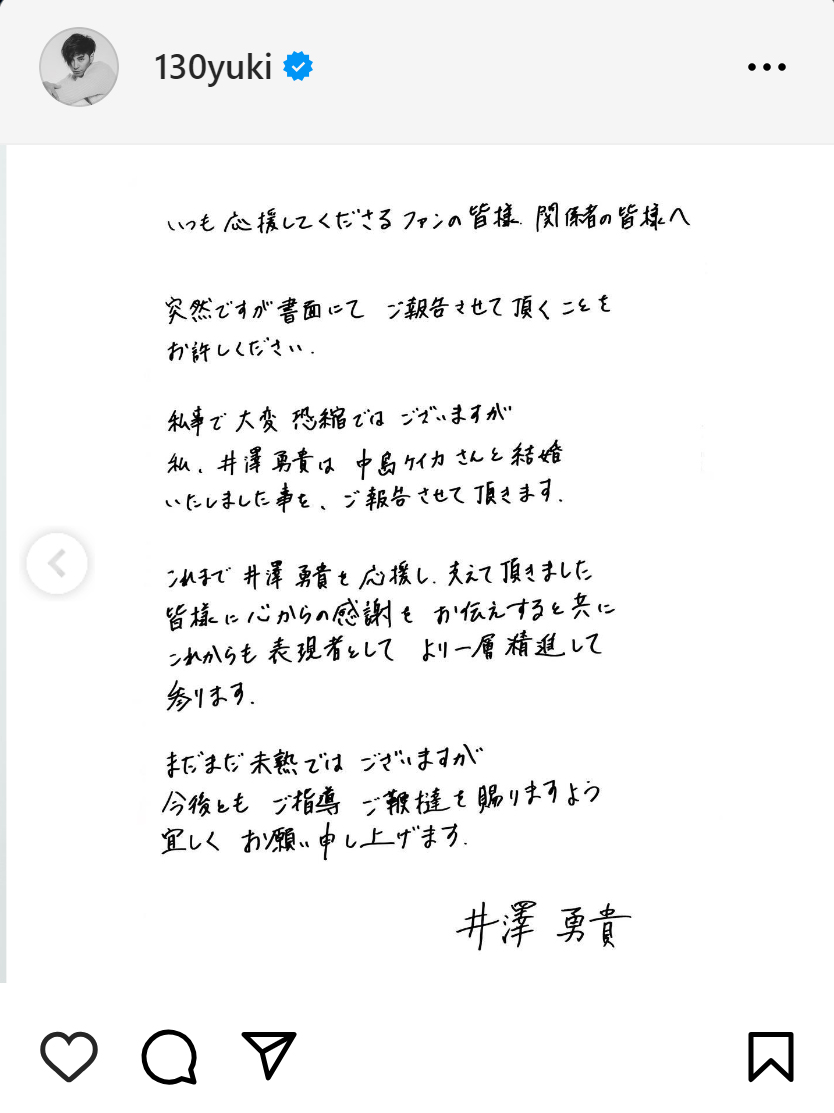 130yuki
いつも応援してくださるファンの皆様. 関係者の皆様へ
突然ですが書面にて ご報告させて頂くことを
お許しください.
私事で 大変 恐縮では ございますが
私、井澤勇貴は 中島ケイカさんと結婚
いたしました事を、ご報告させて頂きます.
これまで 井澤勇貴を応援し、支えて頂きました
皆様に心からの感謝を お伝えすると共に
これからも 表現者として より一層 精進して
参ります.
まだまだ 未熟では ございますが
今後とも ご指導 ご鞭撻を賜りますよう
宜しく お願い申し上げます.
井澤 勇貴